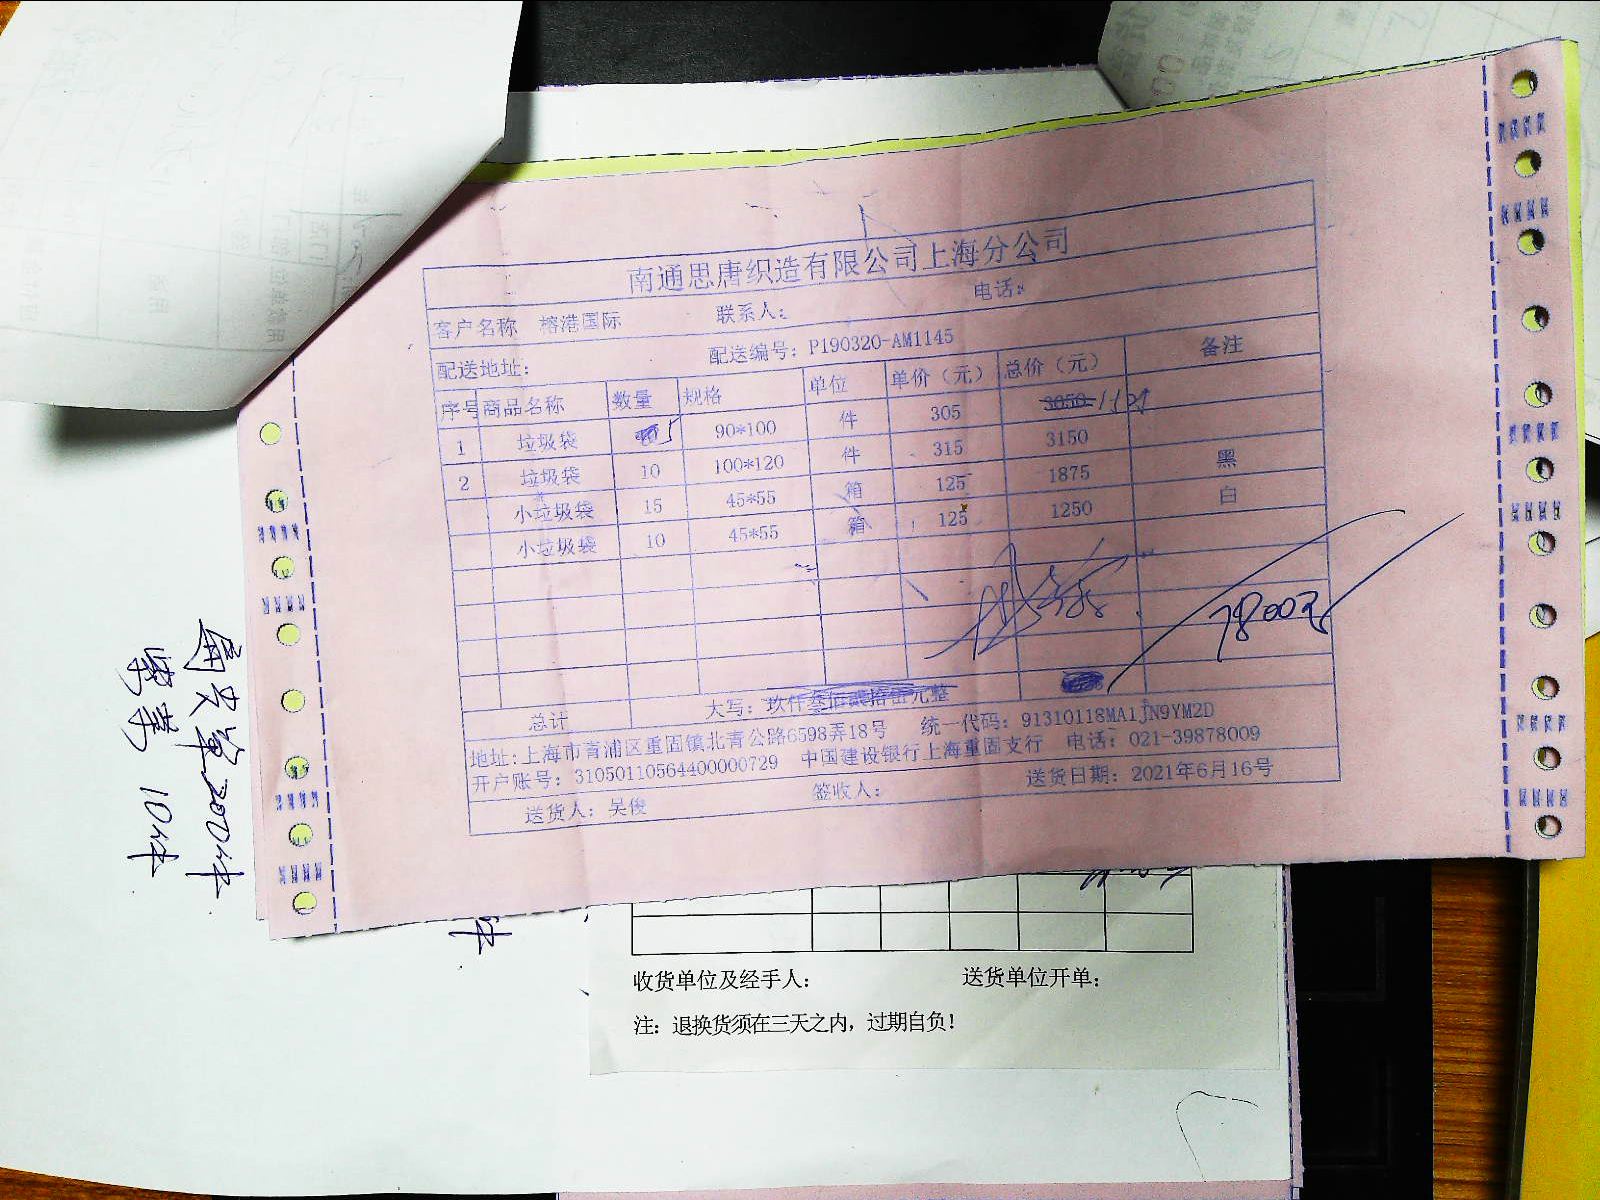 南通思唐织造有限公司上海分公司
客户名称 榕港国际 联系人: 电话:
配送地址: 配送编号: P190320-AM1145
序号 商品名称 数量 规格 单位 单价（元） 总价（元） 备注
1 垃圾袋 5 90*100 件 305 3050
2 垃圾袋 10 100*120 件 315 3150
小垃圾袋 15 45*55 箱 125 1875 黑
小垃圾袋 10 45*55 箱 125 1250 白
7800元
总计 大写: 玖仟叁佰贰拾伍元整
地址:上海市青浦区重固镇北青公路6598弄18号 统一代码: 91310118MA1JN9YM2D
开户账号: 31050110564400000729 中国建设银行上海重固支行 电话: 021-39878009
送货人: 吴俊 签收人: 送货日期: 2021年6月16号
收货单位及经手人: 送货单位开单:
注: 退换货须在三天之内, 过期自负!
200件
10件
件